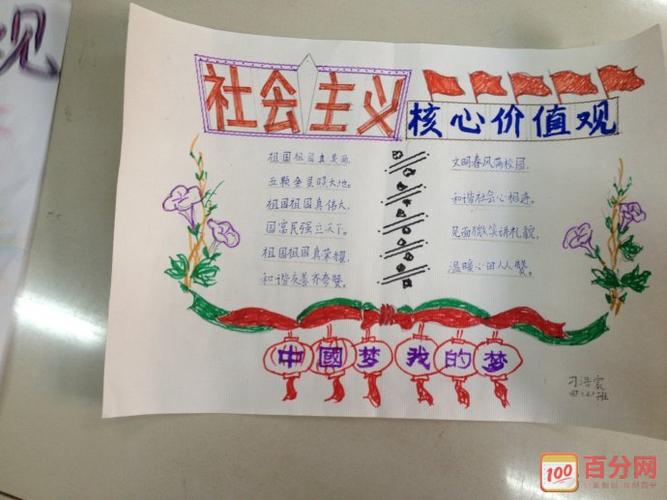 观
社会主义
核心价值观
祖国祖国真美丽
五颗金星照大地。
祖国祖国真伟大,
国富民强立天下。
祖国祖国真荣耀
和谐友善齐夸赞。
文明春风满校园,
和谐社会心相连。
见面微笑讲礼貌,
温暖心田人人赞。
中國梦我的梦
班
100
百分网